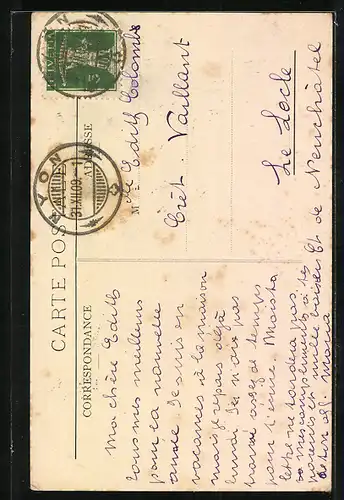 CARTE POSTALE
CORRESPONDANCE
ADRESSE
HELVETIA
5
NYON
31.XII.09.-1
M lle Edith Colomb
Crêt Vaillant
Le Locle
Ct de Neuchâtel
Ma chère Edith
Tous mes meilleurs
pour la nouvelle
année. Je suis en
vacances à la maison
mais je repars déjà
lundi. Je n'ai pas
trouvé assez de temps
pour t'écrire. Mais ta
lettre ne tardera pas.
mes compliments à tes
parents et mille baisers
Maria